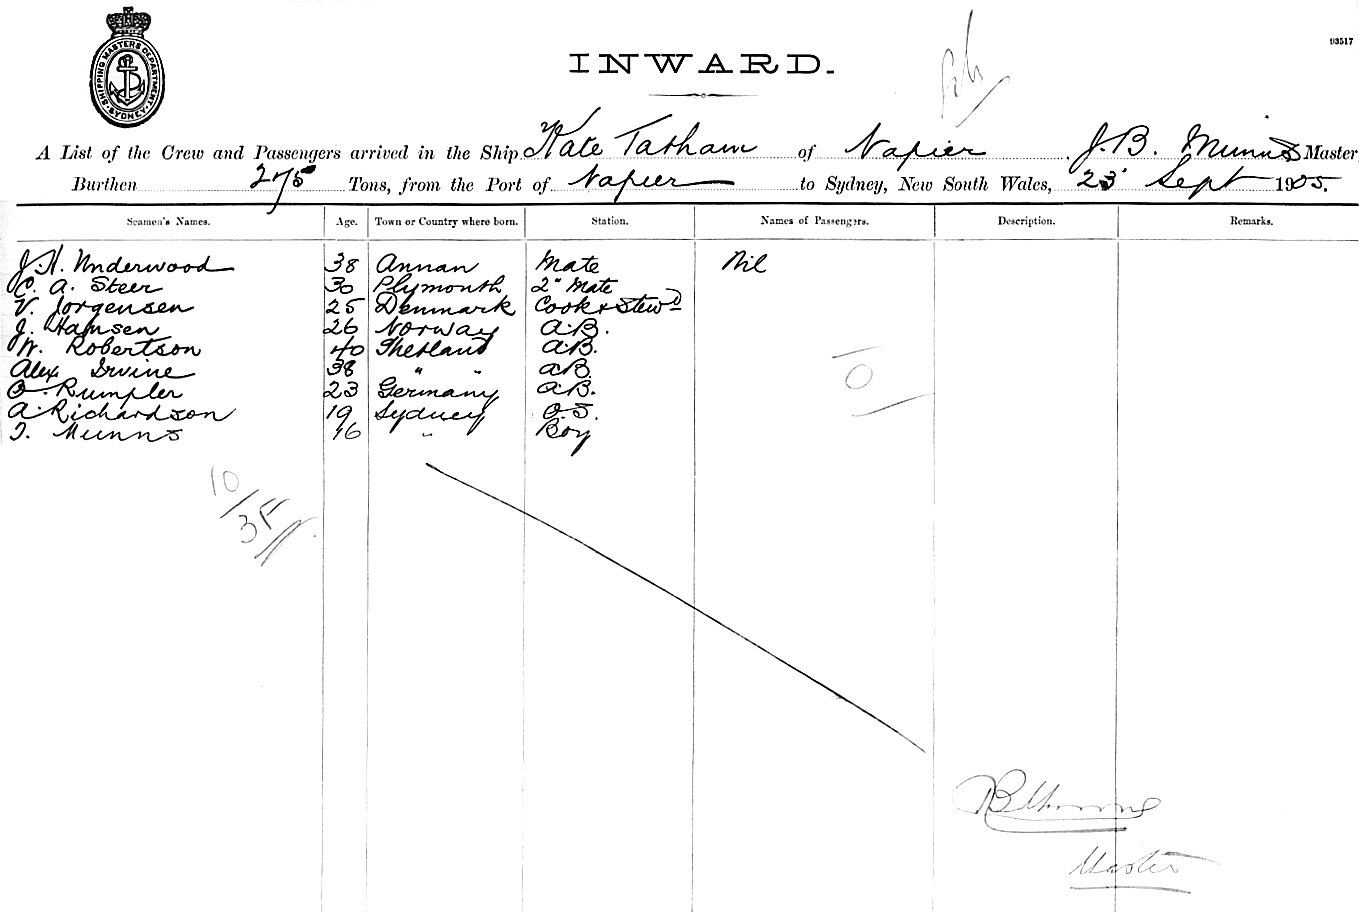 SHIPPING MASTERS DEPARTMENT SYDNEY
03517
INWARD.
A List of the Crew and Passengers arrived in the Ship Kate Tatham of Napier J. B. Munns Master
Burthen 275 Tons, from the Port of Napier to Sydney, New South Wales, 23 Sept 1905.
Seamen's Names. Age. Town or Country where born. Station. Names of Passengers. Description. Remarks.
J. H. Underwood 38 Annan Mate Nil
C. A. Steer 30 Plymouth 2" Mate
V. Jorgensen 25 Denmark Cook & Stewd
J. Hansen 26 Norway A.B.
W. Robertson 40 Shetland A.B.
Alex Irvine 38 " " A.B.
O. Rumpler 23 Germany A.B.
A. Richardson 19 Sydney O.S.
T. Munns 16 " Boy
O
10
3F
JB Munns
Master